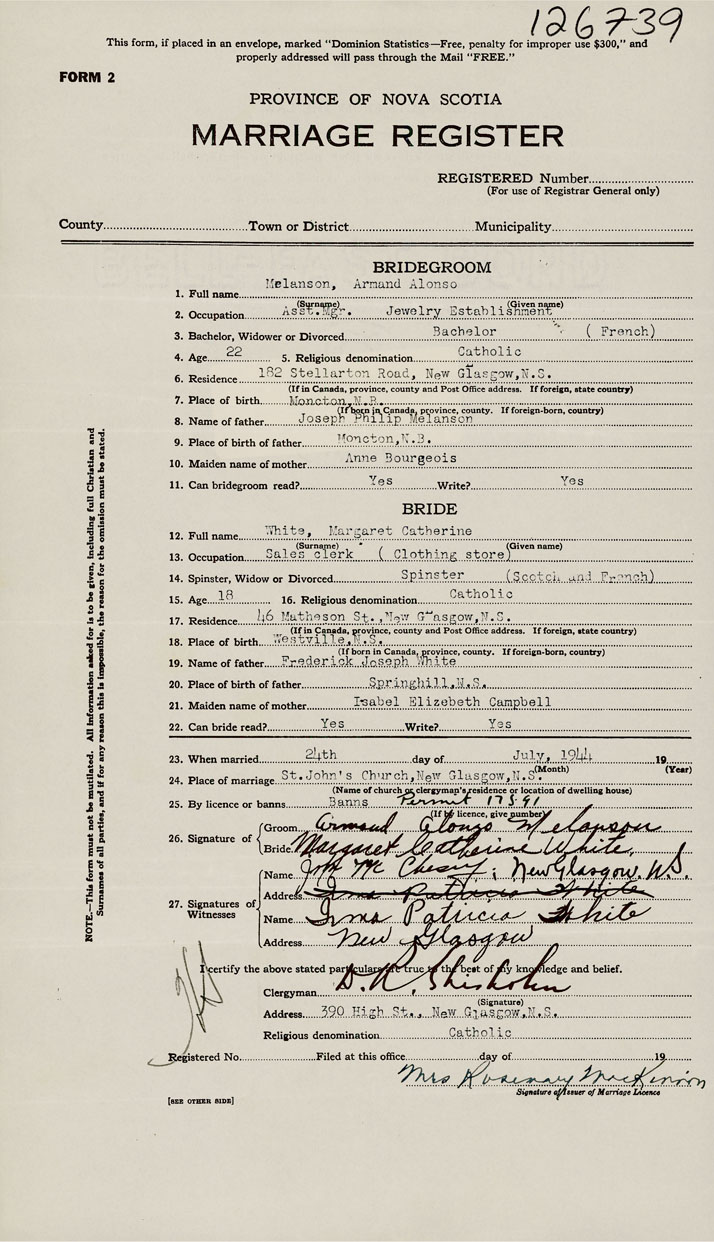 126739
This form, if placed in an envelope, marked "Dominion Statistics—Free, penalty for improper use $300," and
properly addressed will pass through the Mail "FREE."
FORM 2
PROVINCE OF NOVA SCOTIA
MARRIAGE REGISTER
REGISTERED Number
(For use of Registrar General only)
County Town or District Municipality
BRIDEGROOM
1. Full name Melanson, Armand Alonso
(Surname) (Given name)
2. Occupation Asst.Mgr. Jewelry Establishment
3. Bachelor, Widower or Divorced Bachelor ( French)
4. Age 22 5. Religious denomination Catholic
6. Residence 182 Stellarton Road, New Glasgow,N.S.
(If in Canada, province, county and Post Office address. If foreign, state country)
7. Place of birth Moncton,N.B.
(If born in Canada, province, county. If foreign-born, country)
8. Name of father Joseph Philip Melanson
9. Place of birth of father Moncton,N.B.
10. Maiden name of mother Anne Bourgeois
11. Can bridegroom read? Yes Write? Yes
BRIDE
12. Full name White, Margaret Catherine
(Surname) (Given name)
13. Occupation Sales clerk ( Clothing store)
14. Spinster, Widow or Divorced Spinster (Scotch and French)
15. Age 18 16. Religious denomination Catholic
17. Residence 46 Matheson St.,New Glasgow,N.S.
(If in Canada, province, county and Post Office address. If foreign, state country)
18. Place of birth Westville,N.S.
(If born in Canada, province, county. If foreign-born, country)
19. Name of father Frederick Joseph White
20. Place of father Springhill,N.S.
21. Maiden name of mother Isabel Elizebeth Campbell
22. Can bride read? Yes Write? Yes
23. When married 24th day of July, 1944 19
(Month) (Year)
24. Place of marriage St.John's Church,New Glasgow,N.S.
(Name of church or clergyman's residence or location of dwelling house)
25. By licence or banns Banns Permit 17591
(If by licence, give number)
26. Signature of Groom Armand Alonzo Melanson
Bride Margaret Catherine White
27. Signatures of Witnesses Name John ; New Glasgow. N.S.
Address Irma Patricia White
Name Irma Patricia White
Address New Glasgow
I certify the above stated particulars are true to the best of my knowledge and belief.
Clergyman D. R. Chisholm
(Signature)
Address 390 High St., New Glasgow,N.S.
Religious denomination Catholic
Registered No. Filed at this office day of 19
Mrs Rosemary MacKinnon
Signature of Issuer of Marriage Licence
[SEE OTHER SIDE]
NOTE.—This form must not be mutilated. All information asked for is to be given, including full Christian and
Surnames of all parties, and if for any reason this is impossible, the reason for the omission must be stated.